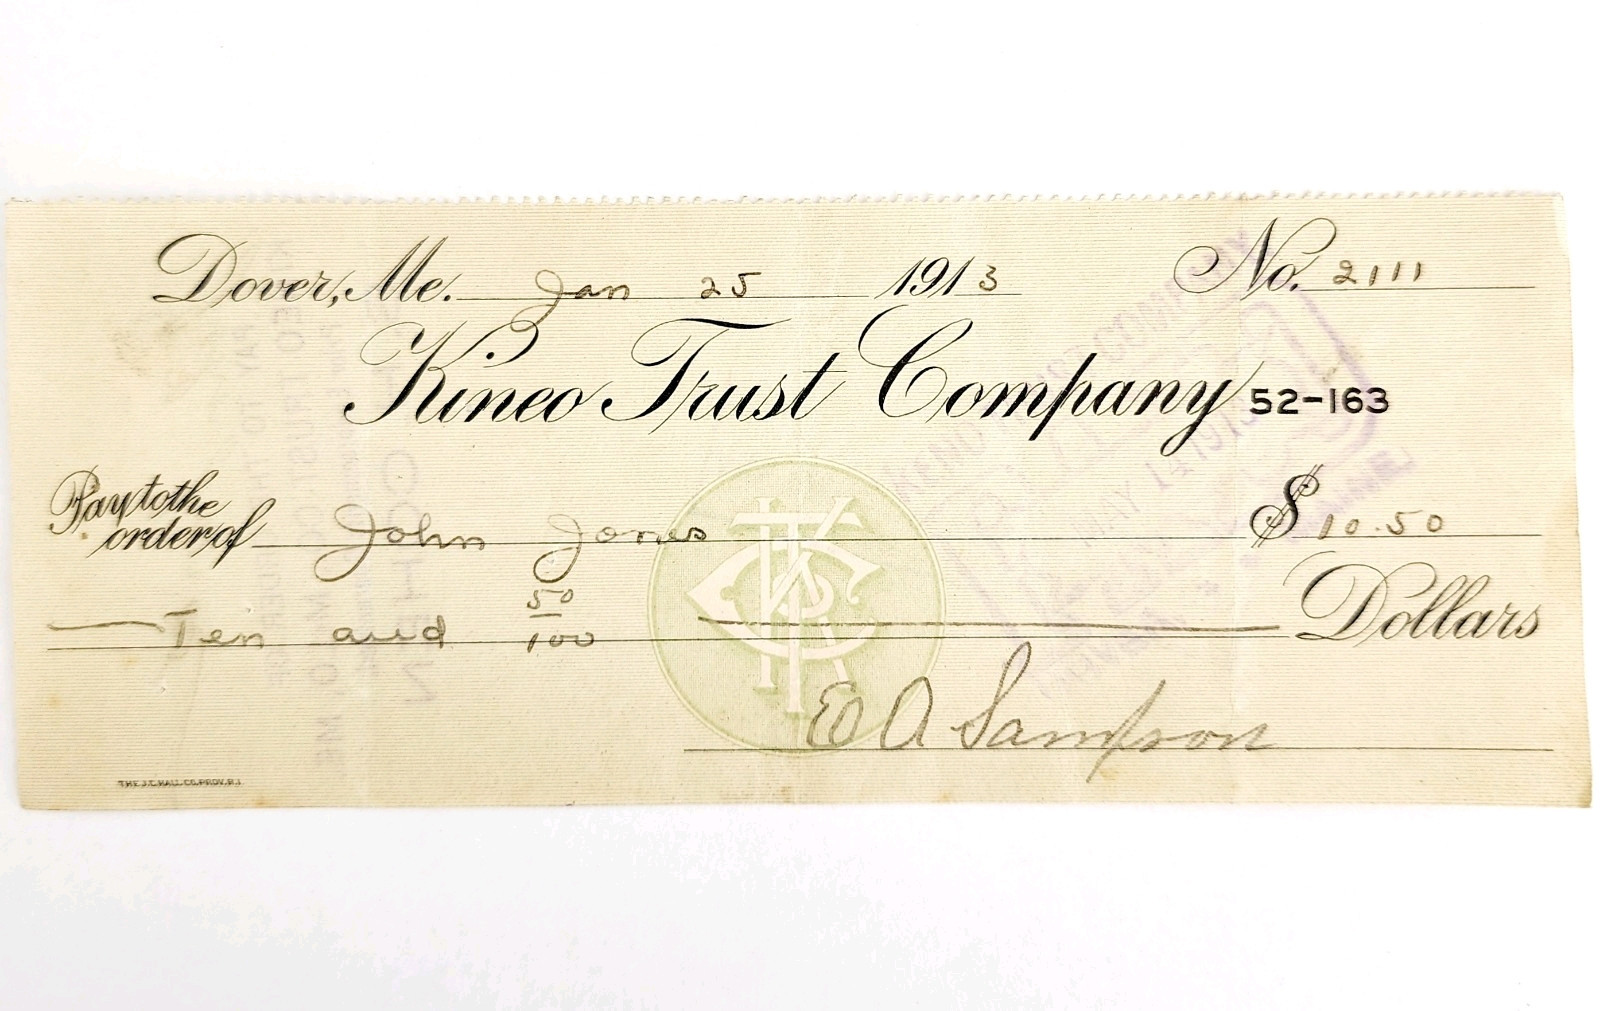 Dover, Me. Jan 25 1913 No. 2111
Kineo Trust Company 52-163
Pay to the order of John Jones $ 10.50
Ten and 50/100 Dollars
E A Sampson
THE J.C. HALL CO. PROV. R.I.
KTC
MAY 14 1913